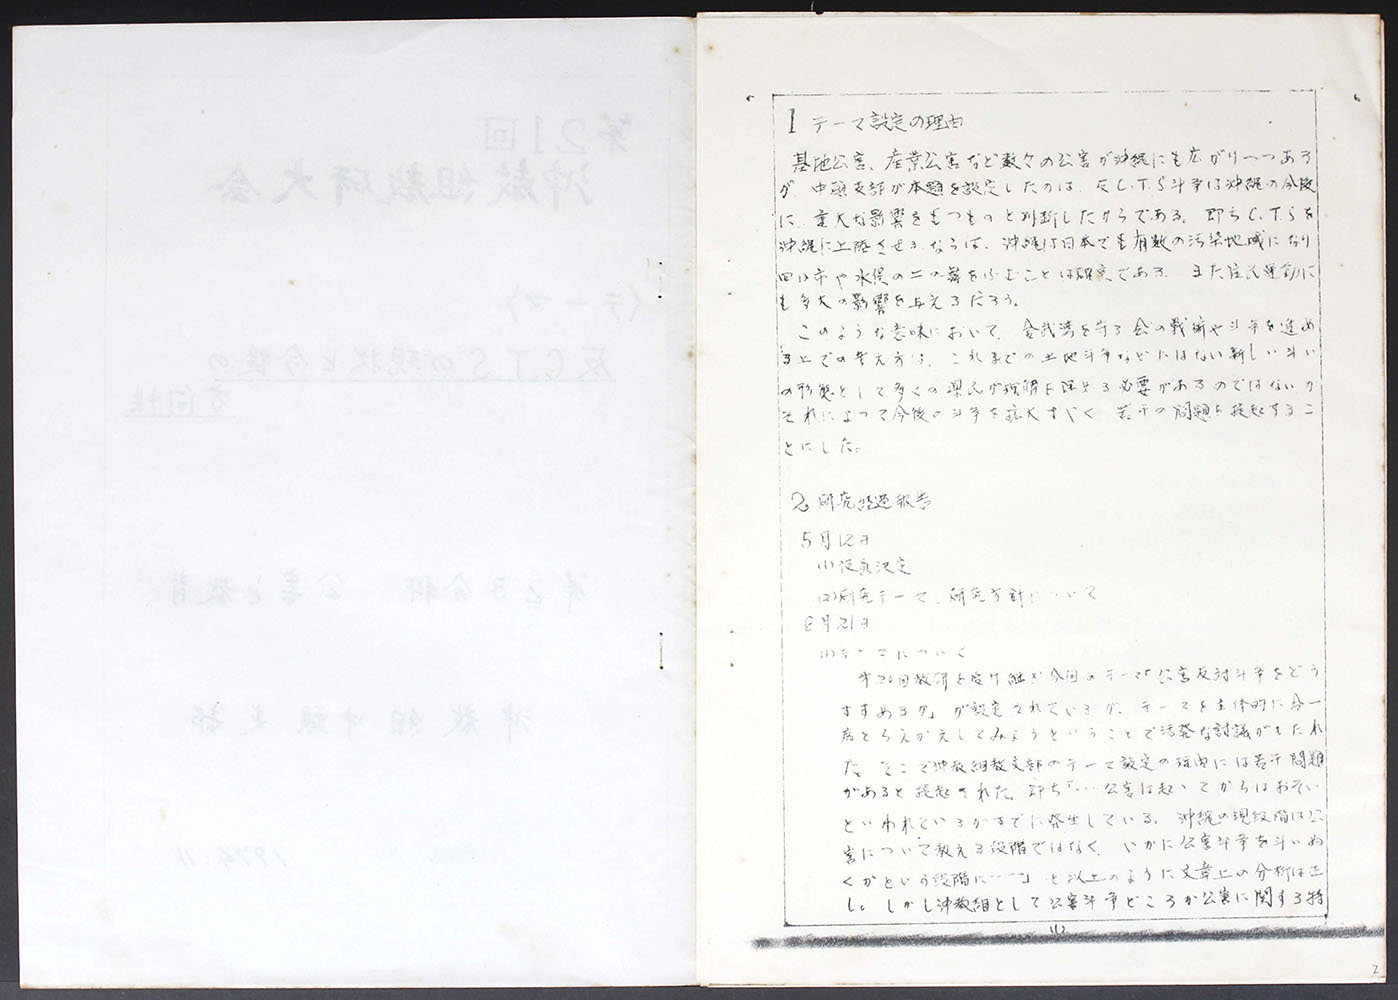 第21回
沖教組教研大会
〈テーマ〉
反C.T.Sの現状と今後の
方向性
第23分科 公害と教育
沖教組中頭支部
1974.11
1 テーマ設定の理由
基地公害、産業公害など数々の公害が沖縄にも広がりつつある
が 中頭支部が本題を設定したのは、反C.T.S斗争は沖縄の今後
に、重大な影響をもつものと判断したからである。即ちC.T.Sを
沖縄に上陸させるならば、沖縄は日本でも有数の汚染地域になり
四日市や水俣の二の舞をふむことは確実である。また住民運動に
も多大の影響を与えるだろう。
このような意味において、金武湾を守る会の戦術や斗争を進め
る上での考え方は、これまでの土地斗争などにはない新しい斗い
の形態として多くの県民が理解を深める必要があるのではないか
それによって今後の斗争を拡大すべく 若干の問題を提起するこ
とにした。
2 研究経過報告
5月12日
(1)役員決定
(2)研究テーマ、研究方針について
6月21日
(1)テーマについて
第20回教研を受け継ぎ今回のテーマ「公害反対斗争をどう
すすめるか」が設定されているが、テーマを主体的に今一
度とらえかえしてみようということで活発な討議がもたれ
た。そこで沖教組教文部のテーマ設定の理由には若干問題
があると提起された。即ち「…公害は起ってからはおそい
といわれているがすでに発生している。沖縄の現段階は公
害について教える段階ではなく、いかに公害斗争を斗いぬ
くかという段階に……」と以上のように文章上の分析は正
し。しかし沖教組として公害斗争どころか公害に関する特
(1)
2